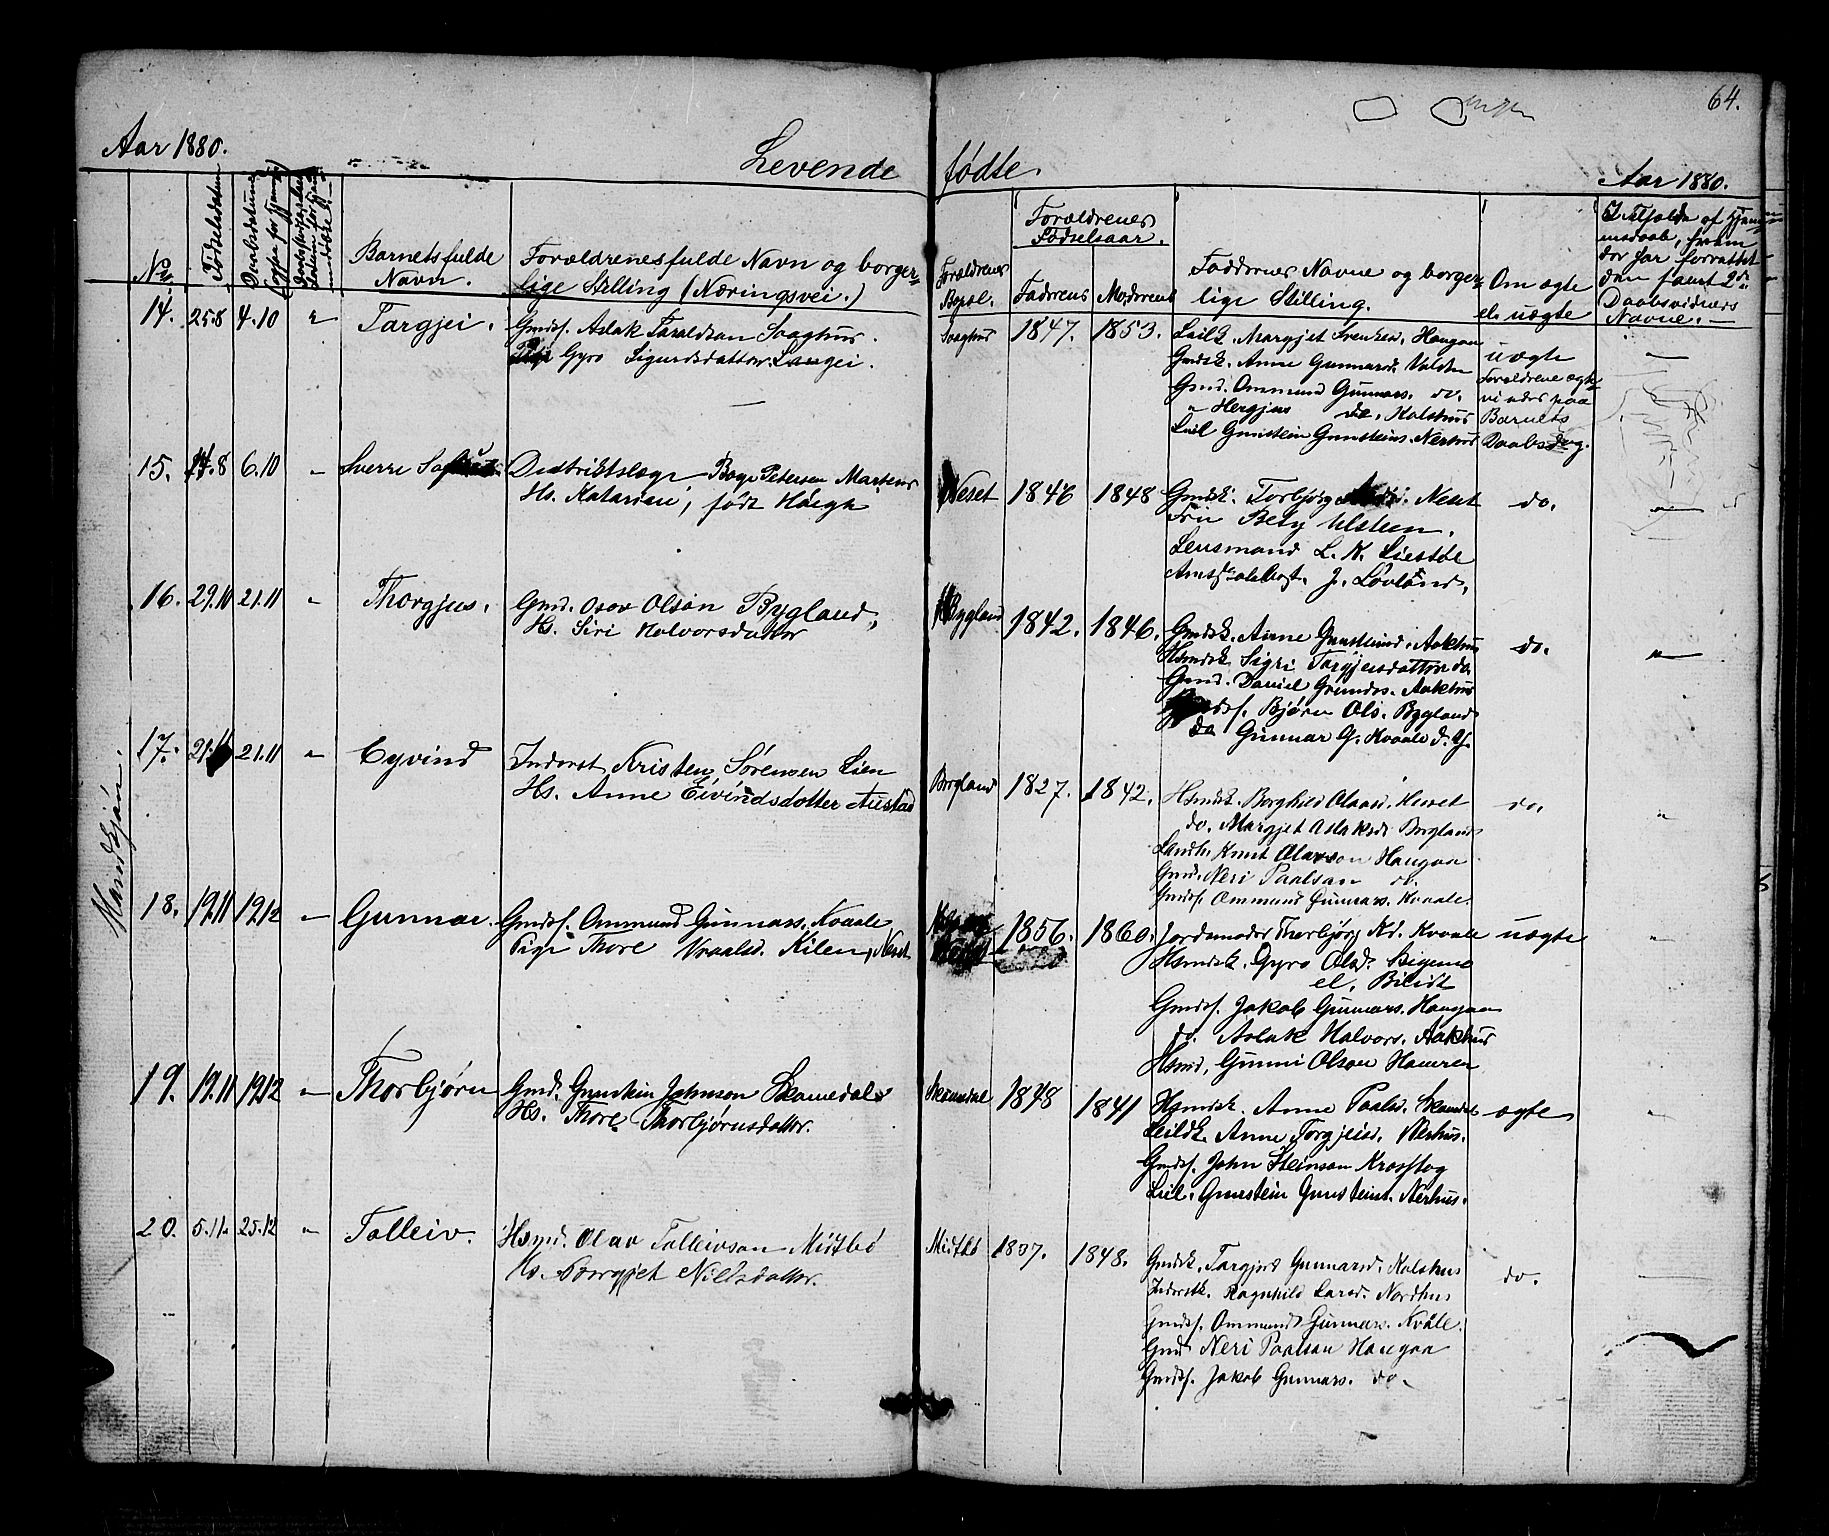 64.
Aar 1880.
Levende fødte.
Aar 1880.
No
Fødselsdatum
Daabsdatum
Barnets fulde Navn.
Forældrenes fulde Navn og borger-
lige Stilling (Næringsvei.)
Forældrenes Bopæl.
Forældrenes Fødselsaar.
Faderens
Moderens
Faddernes Navne og borger-
lige Stilling.
Om ægte
el. uægte
Daabsvidners
Navne.
Mandkjøn.
14. 25.8 4.10 " Targjei.
Gmdsf. Aslak Taraldsøn Saaghus.
Gyro Sigurdsdatter Langei.
Saaghus 1847. 1853.
Leilk. Margjet Svensd. Haugaa
Gmdsk. Anne Gunnarsd. Valden
Gmd. Ommund Gunnars. do.
" Hergjus do. Kalshus
Leil Gunstein Gunsteins. Nerhus
uægte
Forældrene ægte-
vi edes paa
Barnets
Daabsdag.
15. 14.8 6.10 " Sverre
Distriktslæge Boge Petersen Martens
Hs. Katarina, født Haugh
Neset 1846 1848
Gmdsk. Torbjørg Neset
Fru Betzy Ulsteen.
Lensmand L. K. Liestøl
J. Løvland.
do. "
16. 29.10 21.11 " Thorgjus.
Gmd. Osov Olsøn Bygland,
Hs. Siri Halvorsdatter
Bygland 1842. 1846.
Gmdsk. Anne Gunsteind. Aakhus
Hsmdsk Sigri Targjeisdatter do.
Gmd. Daniel Aakhus
Bjørn Ols. Bygland
do Gunnar G. Kvaale d. y.
do. "
17. 21.11 " Eyvind
Inderst Kristen Sørensen Lien
Hs. Anne Eivindsdotter Austad
Bygland 1827. 1842.
Hsmdsk. Borghild Olaasd. Neset
do. Margjet Aslaksd. Bygland
Knut Olavson Haugaa
Gmd. Neri Paalsøn do.
Gmdsf. Ommund Gunnars. Kvaale.
do. "
18. 19.11 19.12 " Gunnar.
Gmdsf. Ommund Gunnars. Kvaale
Pige Thore Vraalsd. Kilen, Neset
1856. 1860.
Jordemoder Thorbjørg Kvaale
Hsmdsk. Gyro Olsd. Skjeme
el. Bleidt
Gmdsf. Jakob Gunnars. Haugaa
do. Aslak Halvors. Aakhus
Hsmd, Gunni Olson Hamren
uægte "
19. 19.11 19.12 " Thorbjørn
Gmd. Gunstein Johnson Skamedal
Hs. Thore Thorbjørnsdatter.
Skamedal 1848 1841
Hsmdsk. Anne Paalsd. Skamdal
Leildk. Anne Torgjeisd. Nerhus.
Gmdsf. John Steinson
Leil. Gunstein Gunsteins. Nerhus.
ægte "
20. 5.11. 25.12 " Talleiv.
Hsmd. Olav Talleivson Midtbø
Hs. Borgjet Nielsdatter.
Midtbø 1837. 1848.
Gmdsk. Targjerd Gunnarsd. Kalshus
Inderstk. Ragnhild Larsd. Nordhus
Gmdsf. Ommund Gunnars. Kvåle.
Gmd Neri Paalson Haugaa
Gmdsf. Jakob Gunnars. do.
do.